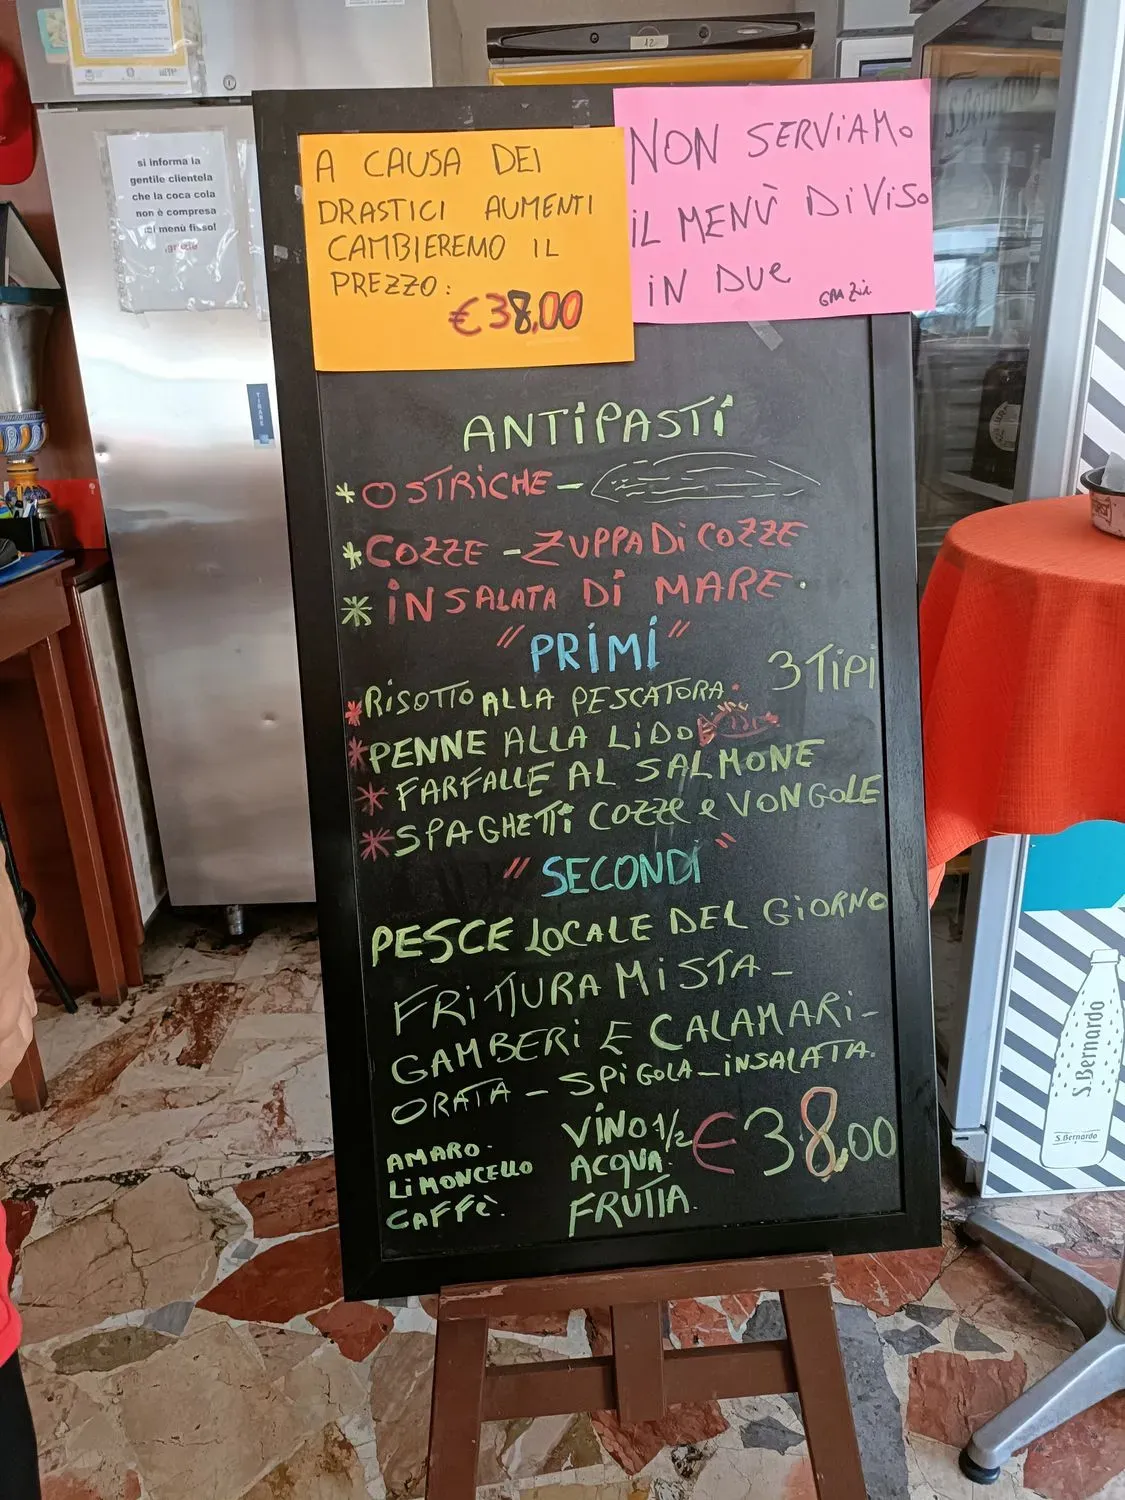 si informa la
gentile clientela
che la coca cola
non è compresa
nel menù fisso!
grazie
12
TIRARE
A CAUSA DEI
DRASTICI AUMENTI
CAMBIEREMO IL
PREZZO:
€38,00
NON SERVIAMO
IL MENÙ DIVISO
IN DUE
GRAZIE
ANTIPASTI
*OSTRICHE-
*COZZE - ZUPPA DI COZZE
* INSALATA DI MARE.
"PRIMI"
3 TIPI
*RISOTTO ALLA PESCATORA.
*PENNE ALLA LIDO
* FARFALLE AL SALMONE
*SPAGHETTI COZZE e VONGOLE
"SECONDI"
PESCE LOCALE DEL GIORNO
FRITTURA MISTA -
GAMBERI E CALAMARI -
ORATA - SPIGOLA - INSALATA.
AMARO.
LIMONCELLO
CAFFÈ.
VINO 1/2
ACQUA.
FRUTTA.
€38,00
S.Bernardo
S.Bernardo